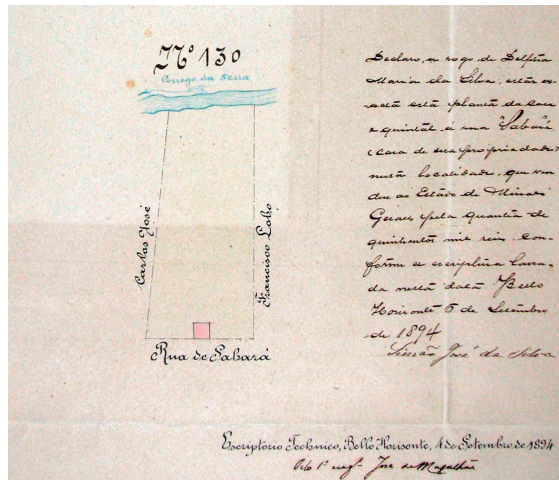 Nº 130
Corrego da Serra
Carlos José
Francisco Lobo
Rua de Sabará
Declaro, a rogo de Delfina
Maria da Silva, estar ex-
acta esta planta da casa
e quintal á rua Sabará
(casa de sua propriedade)
nesta localidade, que ven-
deu ao Estado de Minas
Geraes pela quantia de
quinhentos mil reis, con-
forme a escriptura lavra-
da nesta data. Bello
Horizonte 5 de Setembro
de 1894
Simão José da Silva
Escriptorio Technico, Bello Horisonte, 4 de Setembro de 1894
Pelo 1º engº José de Magalhães